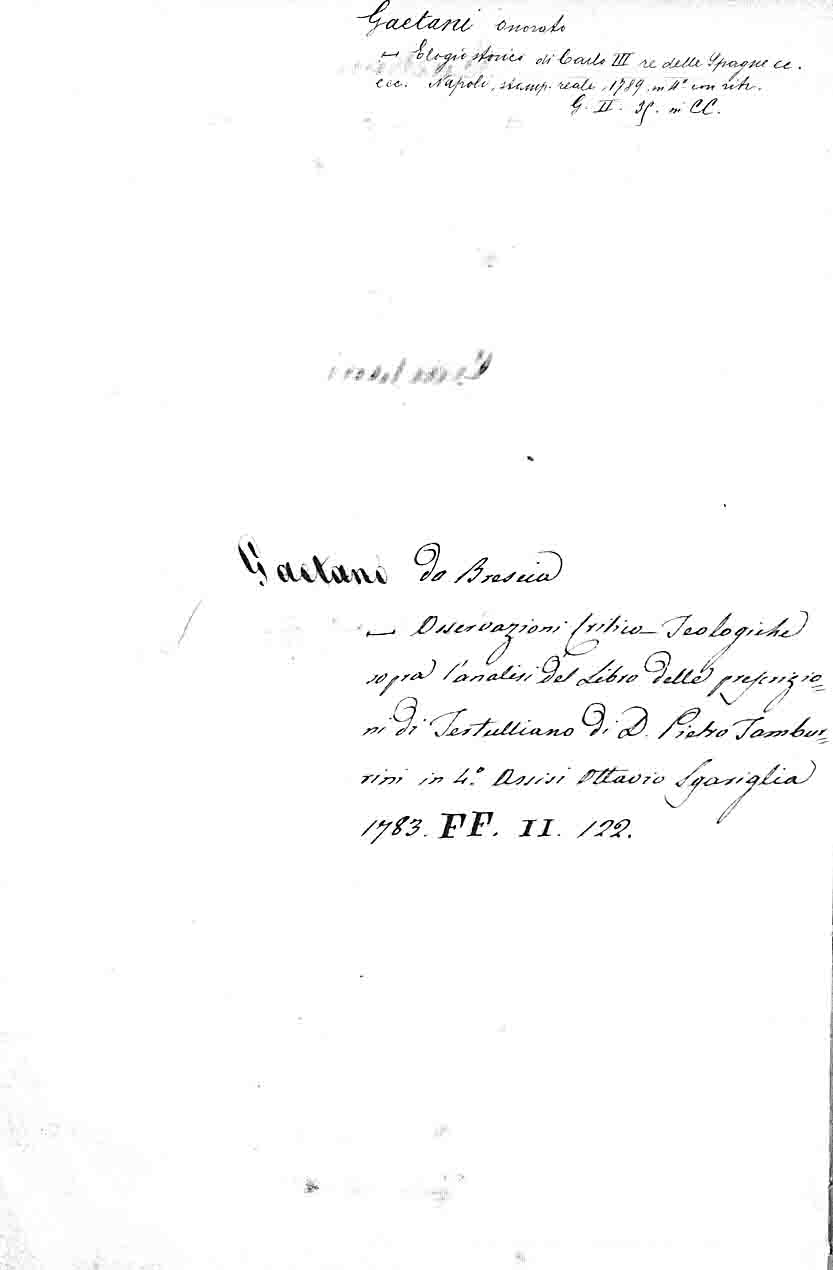 Gaetani Onorato
— Elogio storico di Carlo III re delle Spagne ec.
ecc. Napoli, stamp. reale, 1789. in 4° con ritr.
G. II. 35. in CC.
Gaetano da Brescia
— Osservazioni Critico-Teologiche
sopra l'analisi del Libro delle prescrizio=
ni di Tertulliano di D. Pietro Tambur=
rini in 4.° Assisi Ottavio Sgariglia
1783. FF. II. 122.